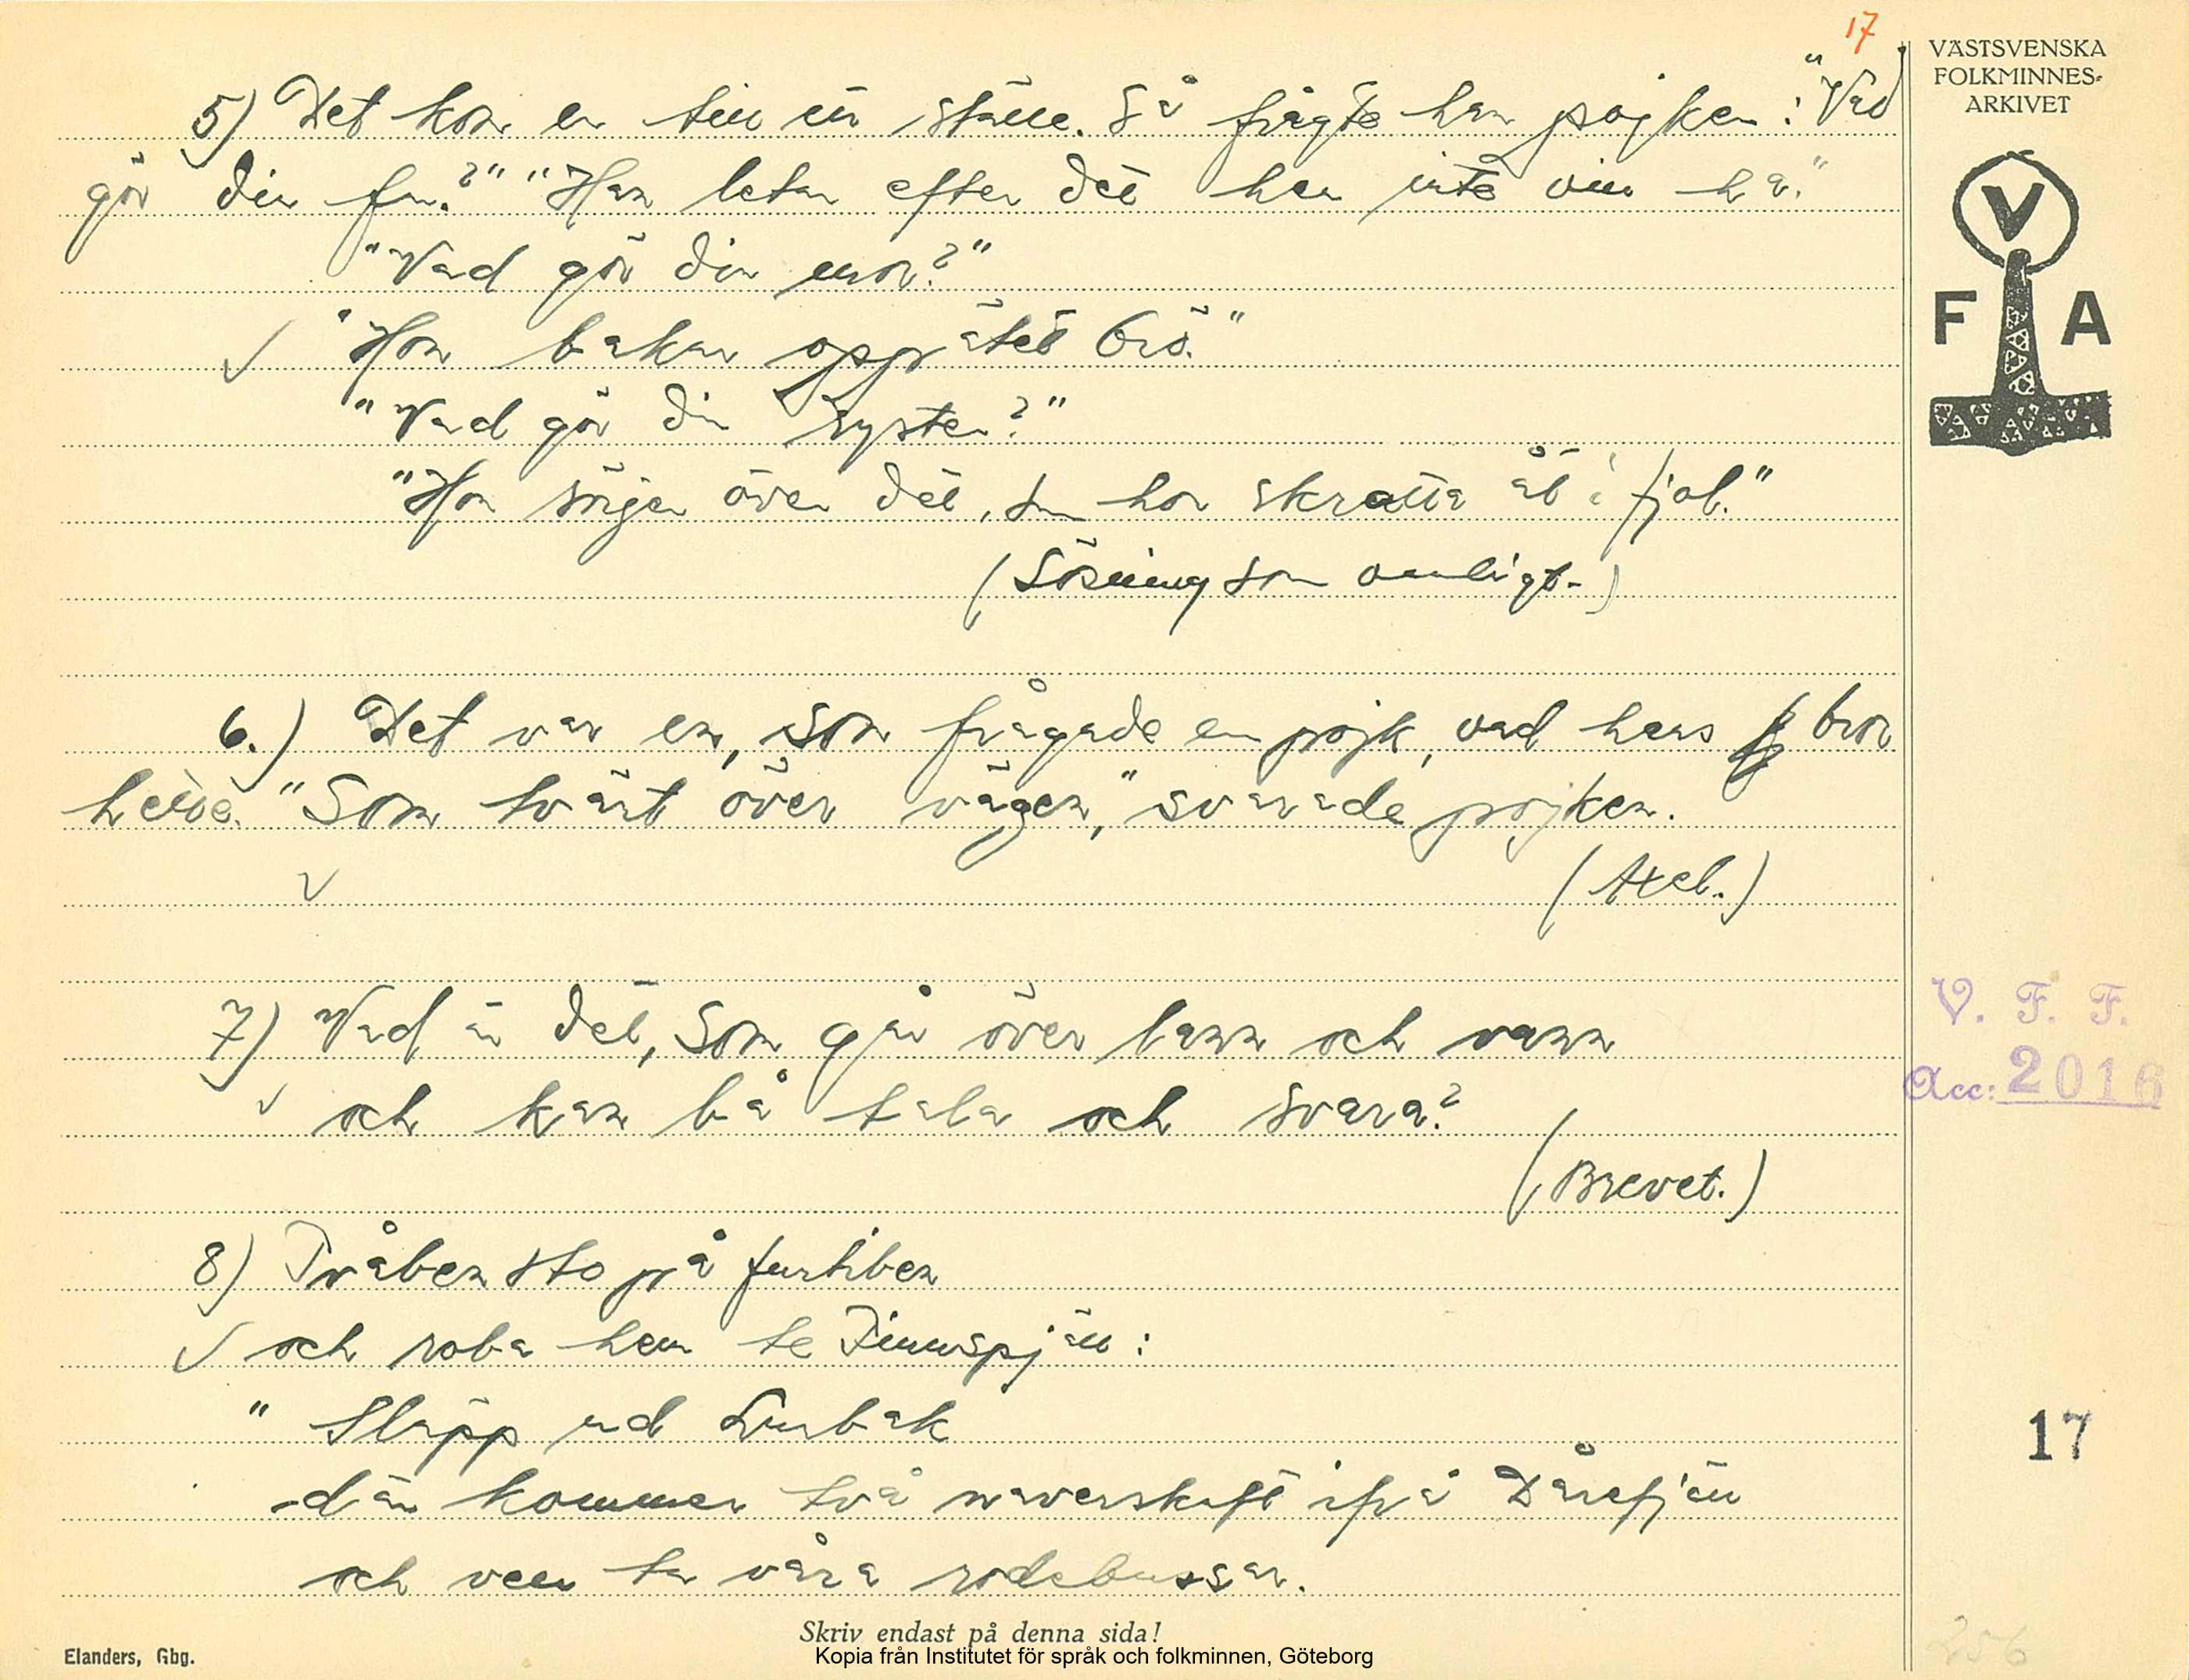 17
VÄSTSVENSKA
FOLKMINNES-
ARKIVET
V
F A
5) Det kom en till ett ställe. Så frågte han pojken: "Vad
gör din far?" "Han letar efter det han inte vill ha."
"Vad gör din mor?"
"Hon bakar oppätet brö."
"Vad gör din syster?"
"Hon sörjer över det, som hon skratta åt i fjol."
(Lösning som vanligt.)
6.) Det var en, som frågade en pojk, vad hans bror
hette. "Som tvärt över vägen," svarade pojken.
(Axel.)
7) Vad är det, som går över lann och vann
och kan bå tala och svara?
(Brevet.)
V. F. F.
Acc: 2016
8) Tvåben sto på furtiben
och roba hem te Finnspjäll:
"Släpp ud Lurbak
där kommer två naverskaft ifrå Dårefjäll
och vell ta våra rodebussar.
17
256
Skriv endast på denna sida!
Elanders, Gbg.
Kopia från Institutet för språk och folkminnen, Göteborg